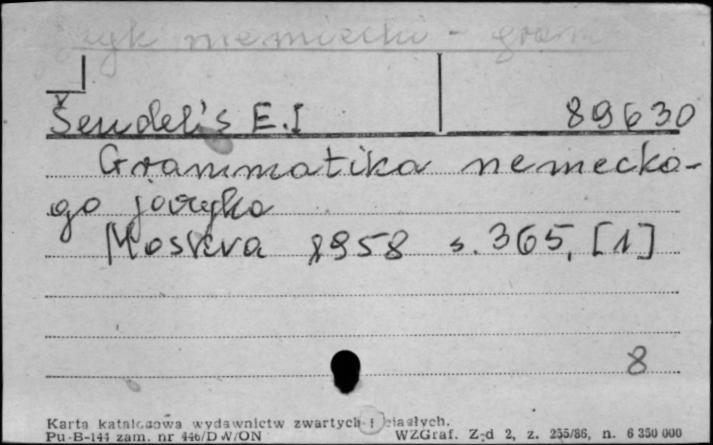 język niemiecki - gram
Šendel's E.I 89630
Grammatika nemecko-
go jazyka
Moskva 1958 s. 365, [1]
8
Karta katalogowa wydawnictw zwartych i ciągłych.
Pu-B-144 zam. nr 446/DW/ON WZGraf. Z-d 2, z. 255/86, n. 6 350 000